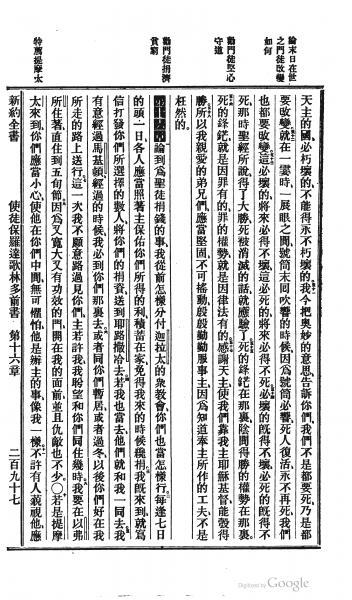 論末日在世
之門徒改變
如何
勸門徒堅心
守道
勸門徒捐濟
貧窮
特薦提摩太
天主的國必朽壞的不能得永不朽壞的我今把奧妙的意思告訴你們我們不是都要死乃是都
要改變就在一霎時一展眼之間號筒末回吹響的時候因爲號筒必響死人復活永不再死我們
也都要改變這必壞的將來必得不壞這必死的將來必得不死必壞的既得不壞必死的既得不
死那時聖經所說得了大勝死被消滅的話就應驗了死的鋒鋩在那裏陰間得勝的權勢在那裏
死的鋒鋩就是因罪有的罪的權勢就是因律法有的感謝天主使我們靠我主耶穌基督能彀得
勝所以我親愛的弟兄們應當堅固不可搖動殷殷勤勤服事主因爲知道奉主所作的工夫不是
枉然的
第十六章論到爲聖徒捐錢的事我從前怎樣分付迦拉太的衆教會你們也當怎樣行每逢七日
的頭一日各人應當照著主保佑你們所得的利積蓄在家免得我來的時候纔捐我既來到就寫
信打發你們所選擇的數人將你們的捐貲送到耶路撒冷去若我也當去他們就和我一同去我
有意經過馬基頓經過的時候我必到你們那裏去或者同你們暫居或者過冬以後你們好在我
所走的路上送行這一次我不願意路過見你們主若許我我盼望和你們同住幾時我要在以弗
所住著直住到五旬節因爲又寬大又有功效的門開在我的面前並且仇敵也不少○若是提摩
太來到你們應當小心使他在你們中間無可懼怕他是辦主的事像我一樣不許有人藐視他應
新約全書 使徒保羅達歌林多前書 第十六章 二百九十七
Digitized by Google